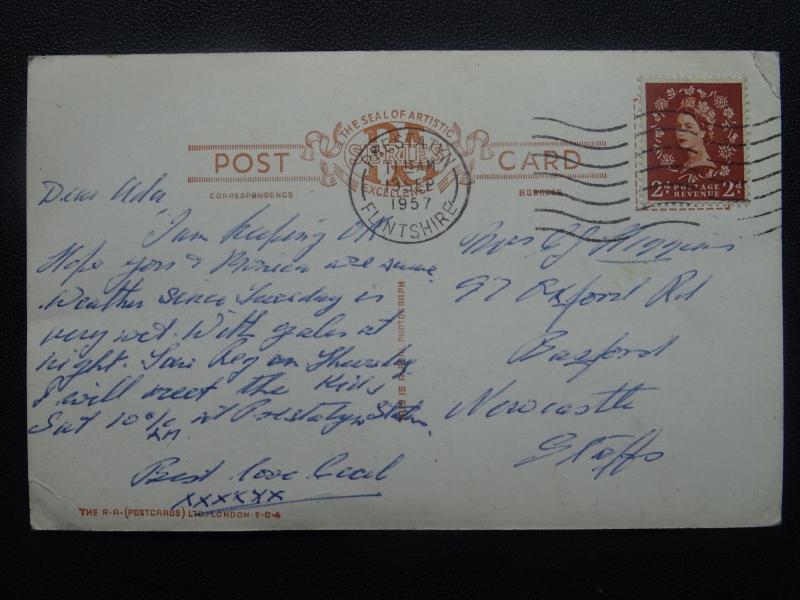 THE SEAL OF ARTISTIC
EXCELLENCE
POST CARD
CORRESPONDENCE
ADDRESS
PRESTATYN
SEP
1957
FLINTSHIRE
2d POSTAGE 2d
REVENUE
Dear Ada
I am keeping OK
Hope you & are same
Weather since Tuesday is
very wet. With gales at
night. Saw Reg on Thursday
I will meet the Kids
Sat 10 o/c at Prestatyn Station.
AM
Best love Cecil
xxxxxx
Mrs C J Higgins
97 Basford Rd
Basford
Newcastle
Staffs
THIS IS A REAL PHOTOGRAPH
THE R.A. (POSTCARDS) LTD. LONDON. E.C.4